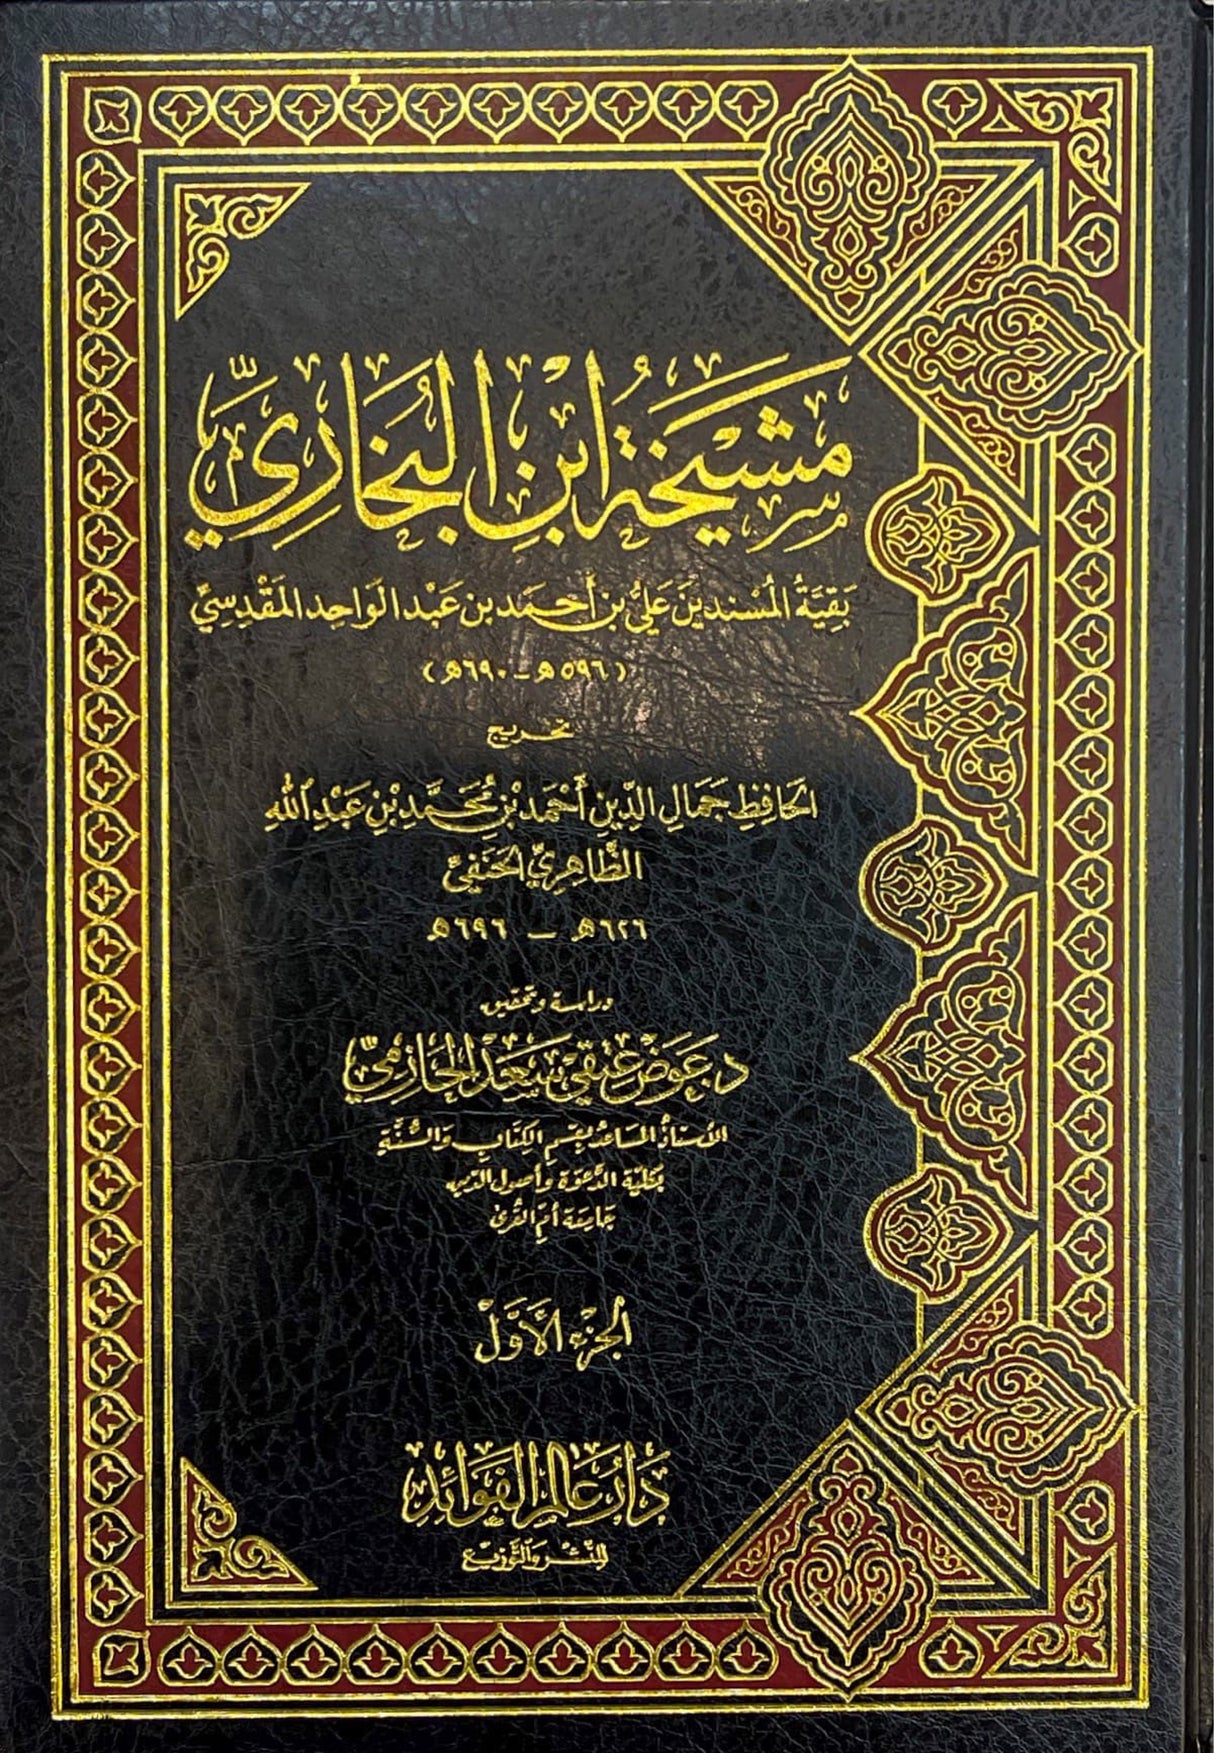 مَشْيَخَةُ ابْنِ الْبُخَارِيِّ
بَقِيَّةُ الْمُسْنِدِينَ عَلِيُّ بن أَحْمَد بن عَبْد الوَاحِد المَقْدِسِيّ
(٥٩٦هـ - ٦٩٠هـ)
تخريج
الحَافِظِ جَمَالِ الدِّينِ أَحْمَد بْنِ مُحَمَّدِ بْنِ عَبْدِ اللهِ
الظَّاهِرِيِّ الحَنَفِيِّ
٦٢٦هـ - ٦٩٦هـ
دراسة وتحقيق
د. عَوَض عتقي سَعَد الحَازِمِيّ
الأستاذُ المساعد بقسم الكِتَابِ وَالسُّنَّةِ
بكلية الدَّعوَة وأصول الدين
جَامِعَة أم القُرى
الجُزْءُ الأَوَّلُ
دَارُ عَالَم الفَوَائِد
لِلنَّشْرِ وَالتَّوْزِيعِ